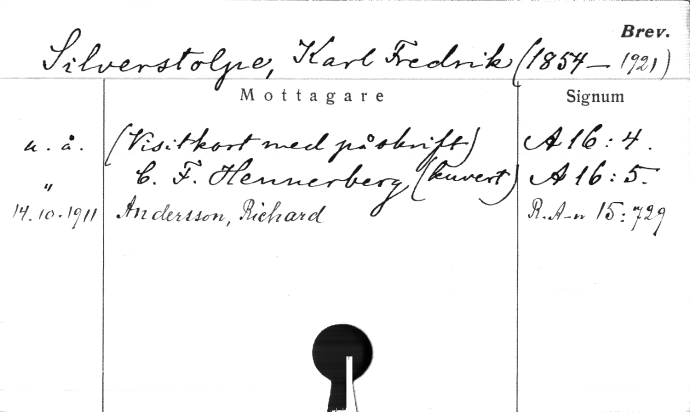 Brev.
Silverstolpe, Karl Fredrik (1854–1921)
Mottagare Signum
u. å. (Visitkort med påskrift) A 16:4.
" C. F. Hennerberg (kuvert) A 16:5.
14.10.1911 Andersson, Richard R.A-n 15:729